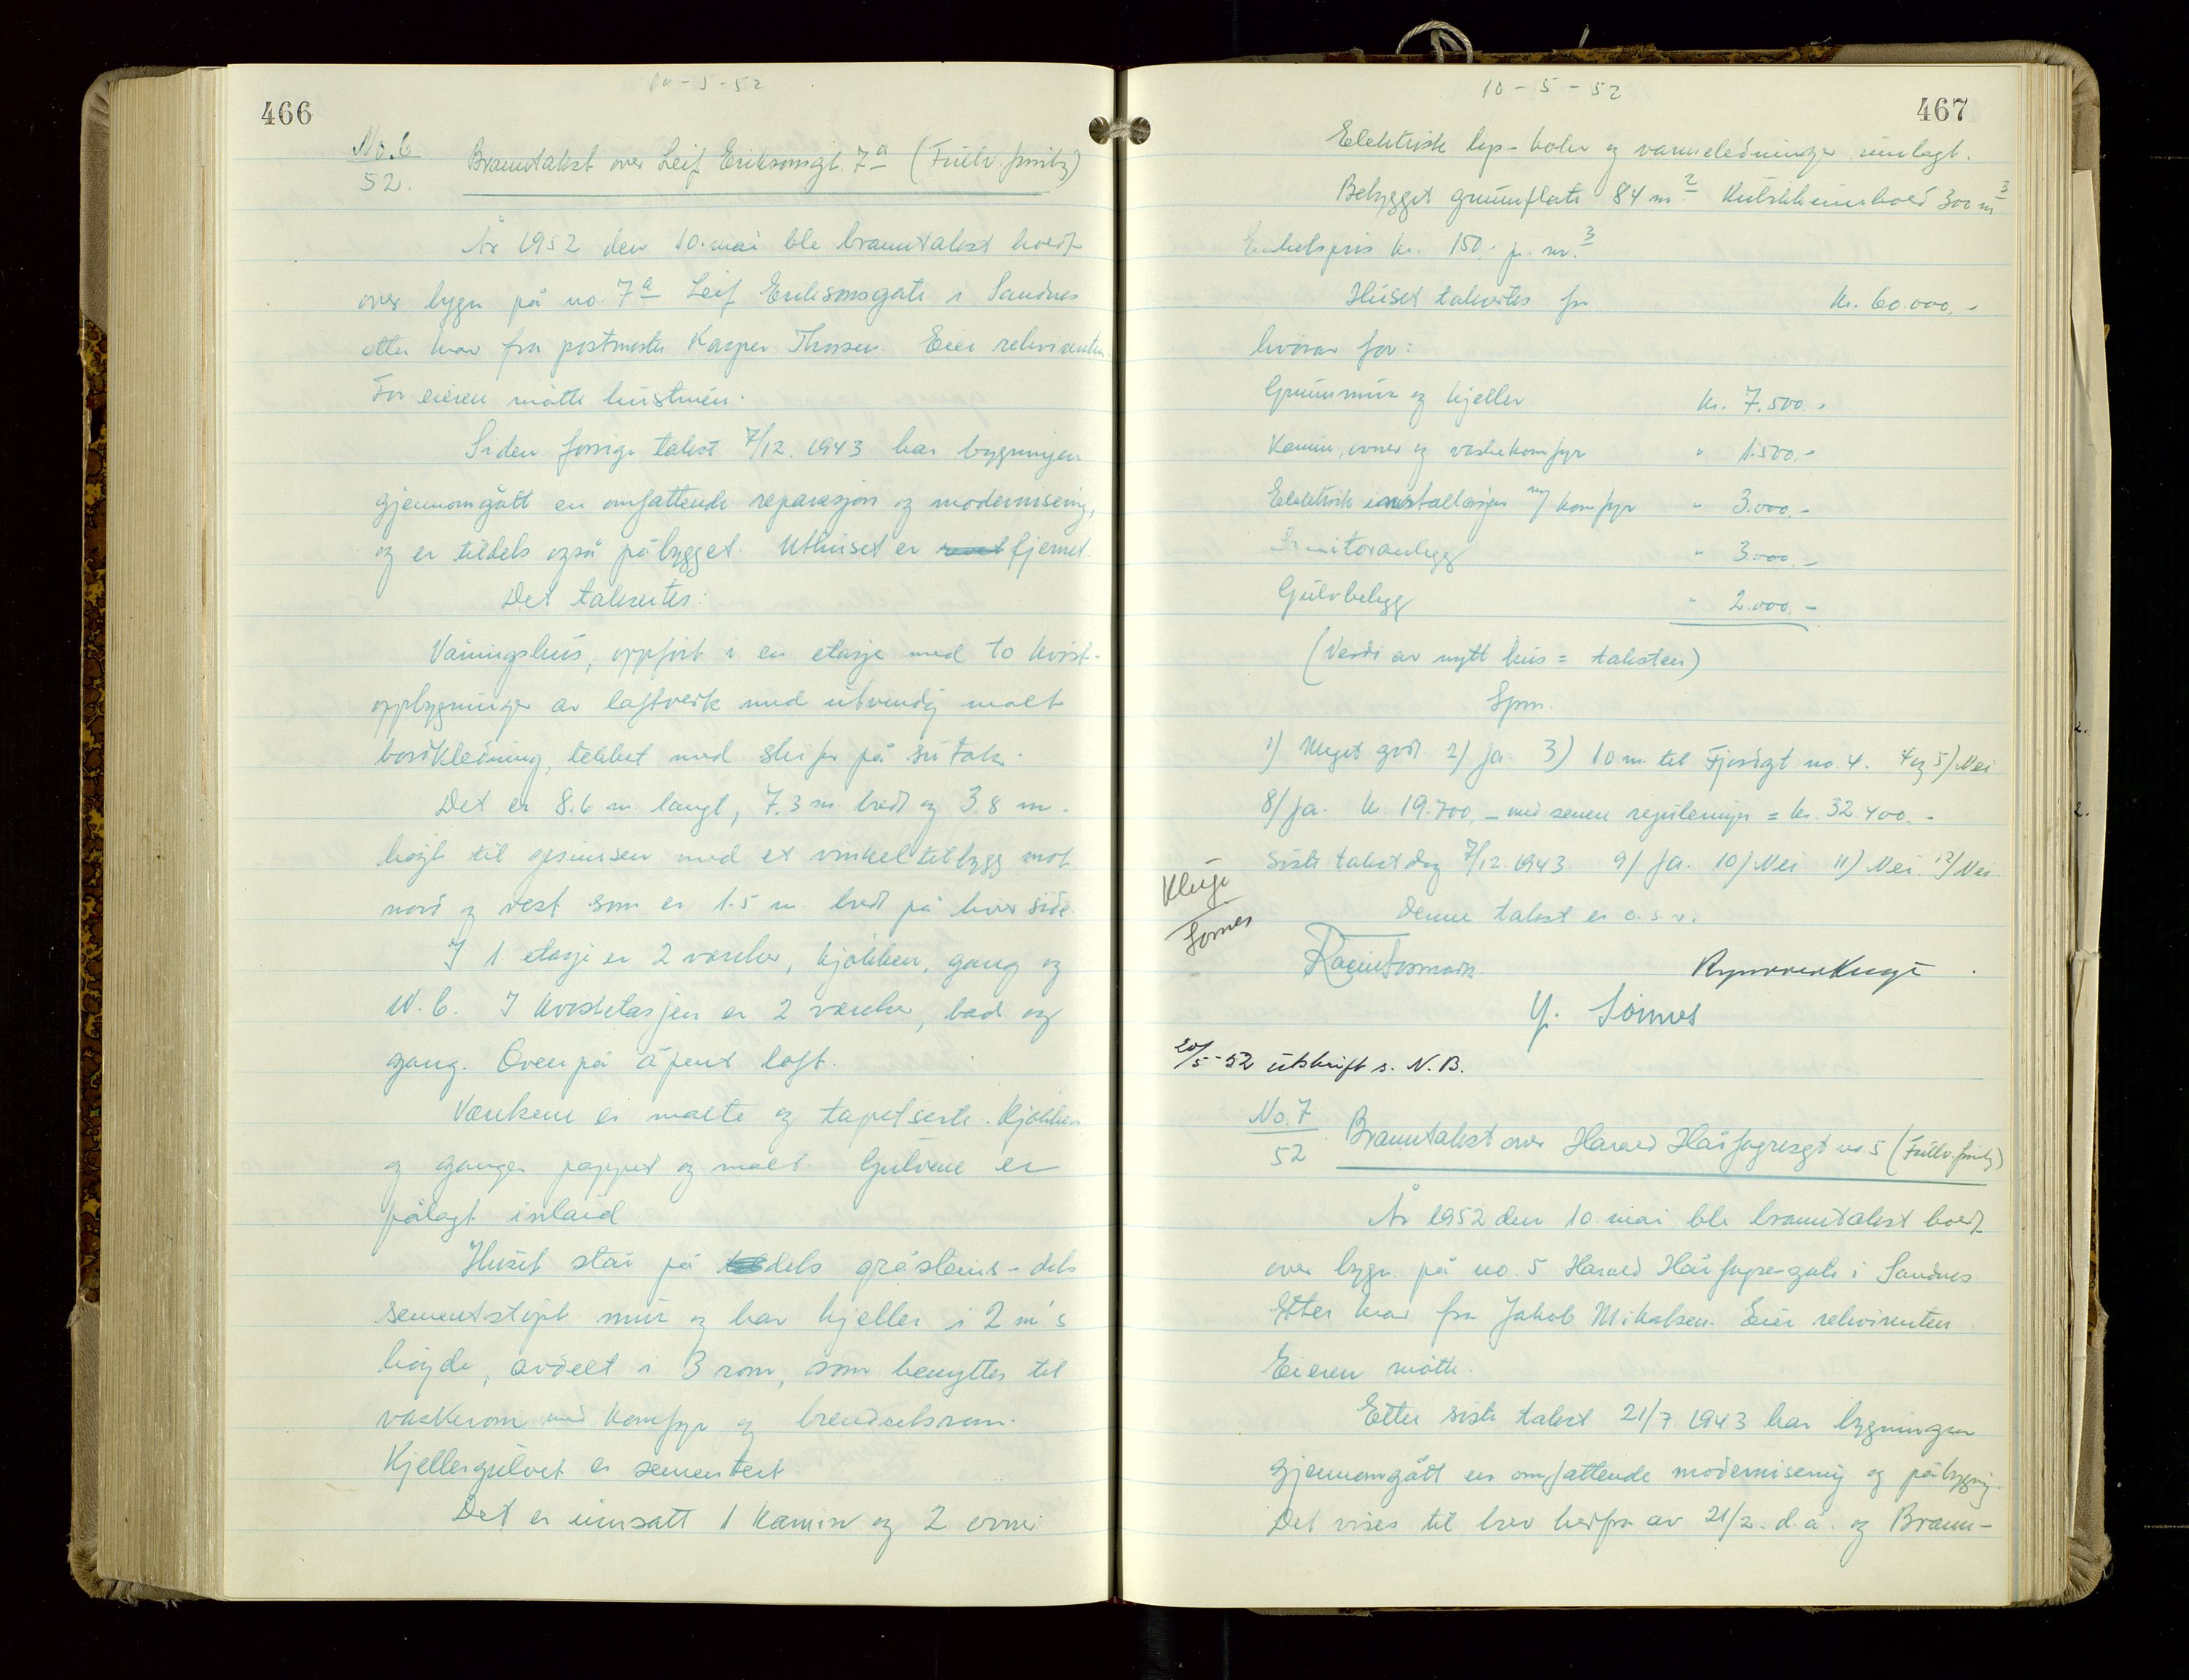 10-5-52
466
No. 6
52.
Branntakst over Leif Eriksonsgt. 7a (Fullv. forsikr)
År 1952 den 10. mai ble branntakst holdt
over bygn på no. 7a Leif Eriksonsgate i Sandnes
etter krav fra postmester Kasper Thorsen. Eier rekvirenten.
For eieren møtte hustruen.
Siden forrige takst 7/12. 1943 har bygningen
gjennomgått en omfattende reparasjon og modernisering,
og er tildels også påbygget. Uthuset er fjernet.
Det taksertes:
Våningshus, oppført i en etasje med to kvist-
oppbygninger av laftverk med utvendig malt
bordkledning, tekket med skifer på sutak.
Det er 8.6 m. langt, 7.3 m. bredt og 3.8 m.
høgt til gesimsen med et vinkeltilbygg mot
nord og vest som er 1.5 m. bredt på hver side.
I 1. etasje er 2 værelser, kjøkken, gang og
W.C. I kvistetasjen er 2 værelser, bad og
gang. Ovenpå åpent loft.
Værelsene er malte og tapetserte. Kjøkken
og ganger pappet og malt. Gulvene er
pålagt inlaid
Huset står på dels gråsteins- dels
sementstøpt mur og har kjeller i 2 m's
høyde, avdelt i 3 rom, som benyttes til
vaskerom med komfyr og brendselsrom.
Kjellergulvet er sementert
Det er innsatt 1 kamin og 2 ovner.
10-5-52
467
Elektrisk lys- koke og varmeledninger innlagt.
Bebygget grunnflate 84 m2. Kubikkinnhold 300 m3
Enhetspris kr. 150.- pr. m.3
Huset takseres for kr. 60.000.-
hvorav for:
Grunnmur og kjeller kr. 7.500.-
Kamin, ovner og vaskekomfyr " 1.500.-
Elektrisk installasjon og komfyr " 3.000.-
Sanitæranlegg " 3000.-
Gulvbelegg " 2.000.-
(Verdi av nytt hus = taksten)
Spm.
1) Meget god. 2) Ja. 3) 10 m. til Fjordgt. no. 4. 4 og 5) Nei
8) Ja. Kr 19.700.- med senere reguleringer = kr. 32.400.-
Siste takst dag 7/12. 1943. 9) Ja. 10) Nei. 11) Nei. 12) Nei.
Denne takst er o.s.v.
Kluge
Sømes
Y. Sømes
20/5-52 utskrift s. N.B.
No. 7
52
Branntakst over Harald Hårfagresgt no. 5 (Fullv. forsikr)
År 1952 den 10. mai ble branntakst holdt
over bygn. på no. 5 Harald Hårfagresgate i Sandnes
etter krav fra Jakob Mikalsen. Eier rekvirenten.
Eieren møtte.
Etter siste takst 21/7. 1943 har bygningen
gjennomgått en omfattende modernisering og påbygning.
Det vises til brev herfra av 21/2. d.å. og Brann-